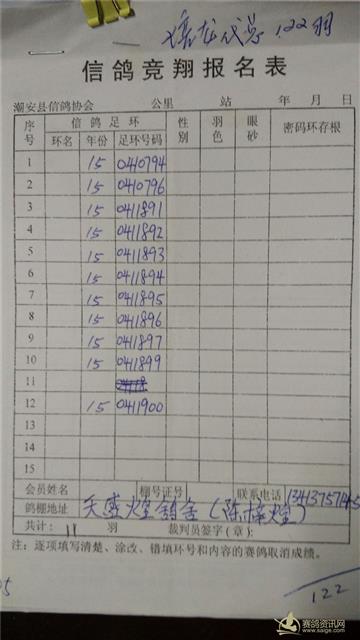 代总122羽
信鸽竞翔报名表
潮安县信鸽协会 公里 站 年 月 日
序号 信鸽足环 性别 羽色 眼砂 密码环存根
环名 年份 足环号码
1 15 0410794
2 15 0410796
3 15 0411891
4 15 0411892
5 15 0411893
6 15 0411894
7 15 0411895
8 15 0411896
9 15 0411897
10 15 0411899
11
12 15 0411900
13
14
15
会员姓名 棚号证号 联系电话
鸽棚地址 天盛煌鸽舍(陈梓煌)
共计: 11 羽 裁判员签字(章):
注:逐项填写清楚、涂改、错填环号和内容的赛鸽取消成绩。
122
赛鸽资讯网
www.saige.com